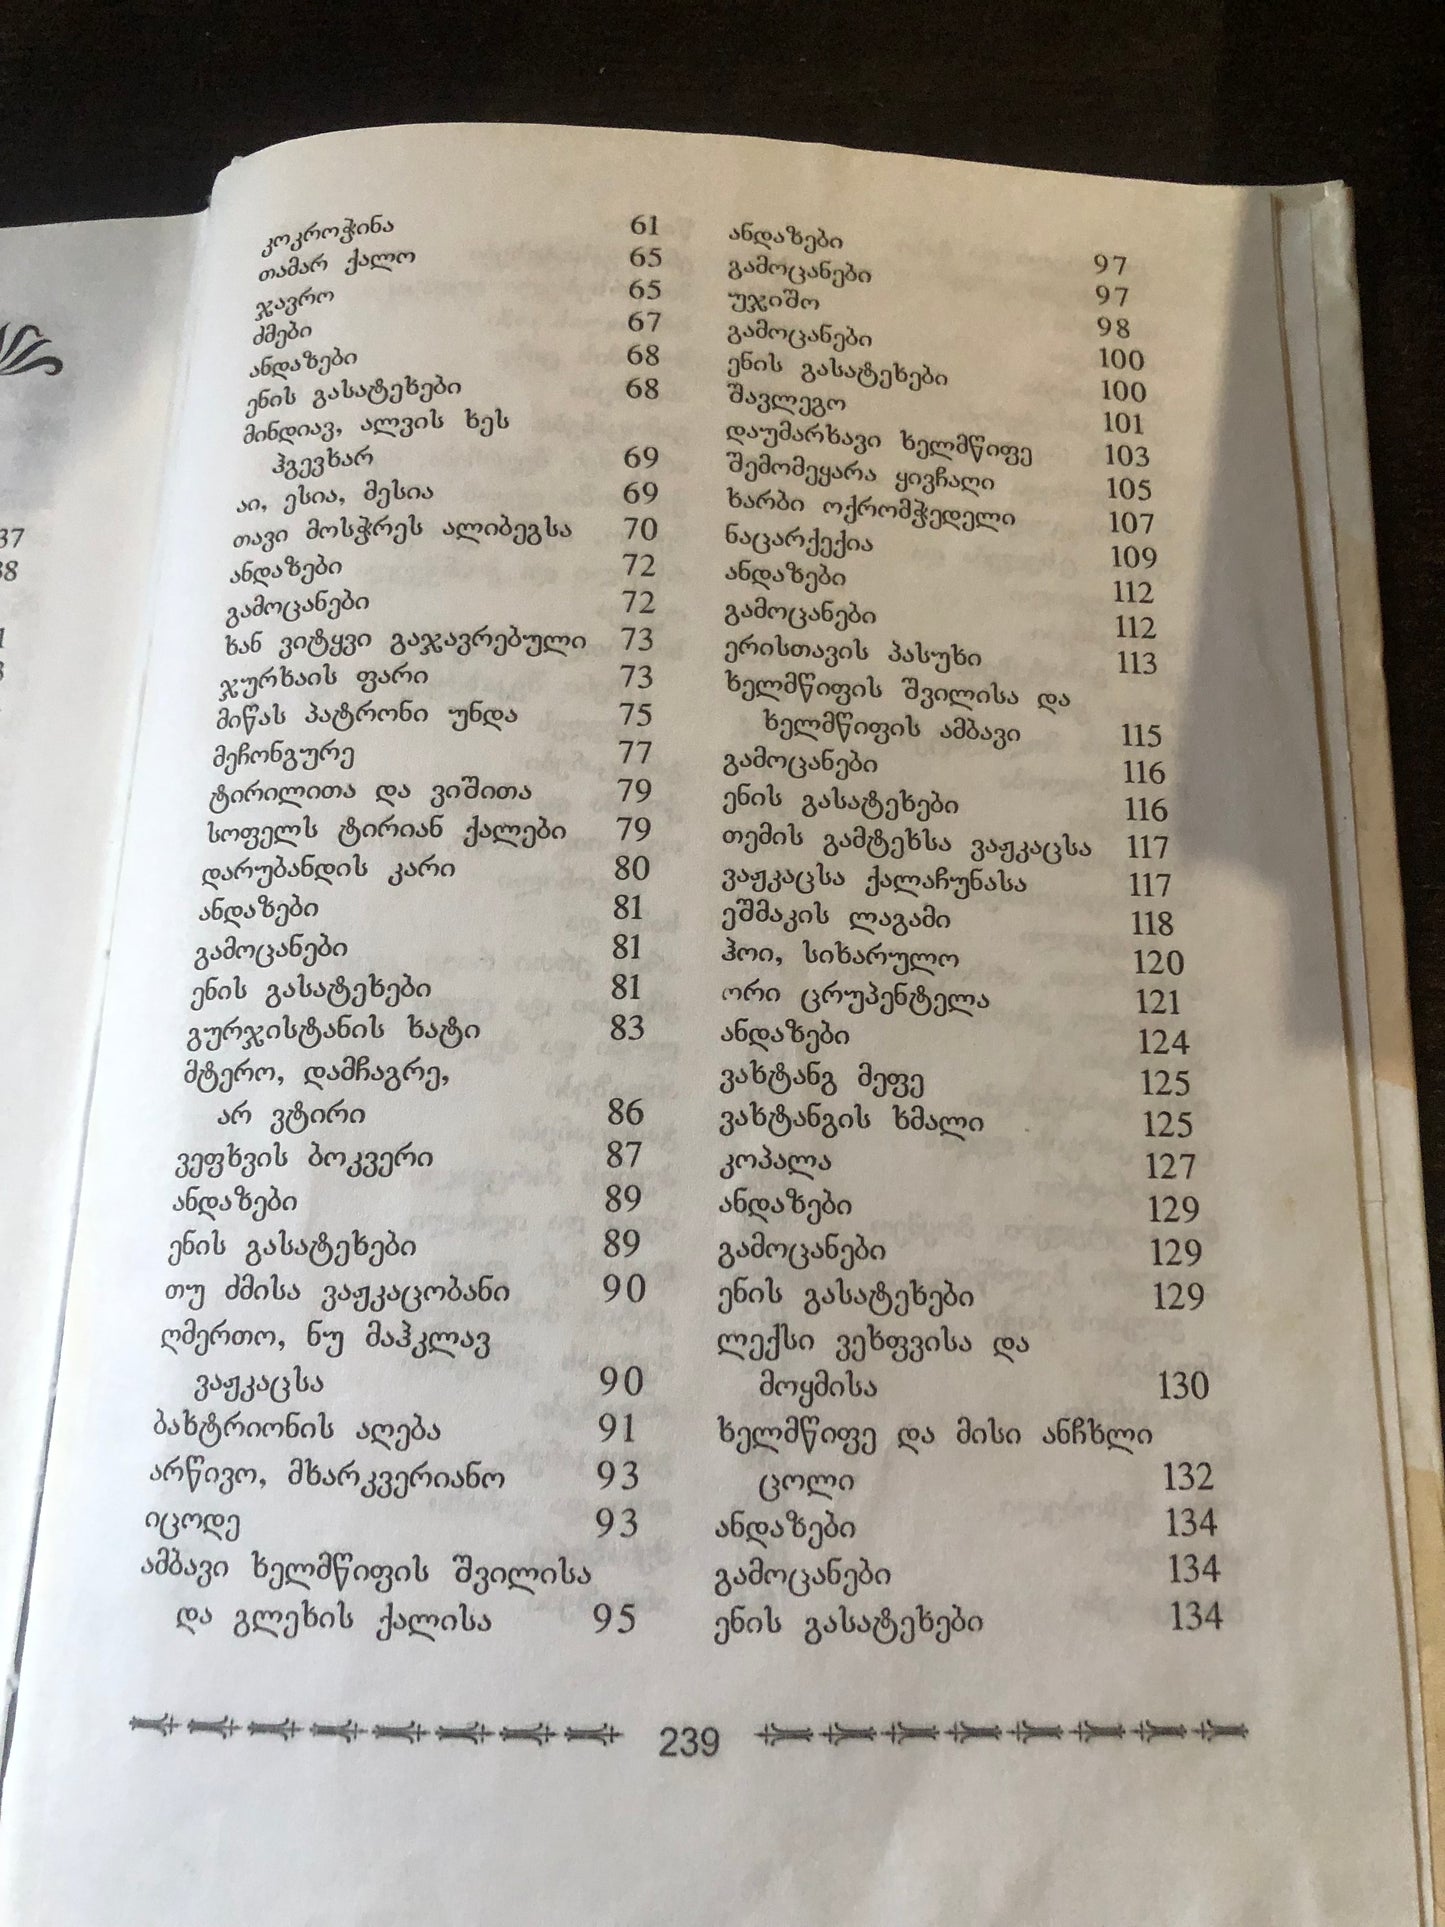 კოკროჭინა 61
თამარ ქალო 65
ჯავრო 65
ძმები 67
ანდაზები 68
ენის გასატეხები 68
მინდიავ, ალვის ხეს
ჰგევხარ 69
აი, ესია, მესია 69
თავი მოსჭრეს ალიბეგსა 70
ანდაზები 72
გამოცანები 72
ხან ვიტყვი გაჯავრებული 73
ჯურხაის ფარი 73
მიწას პატრონი უნდა 75
მეჩონგურე 77
ტირილითა და ვიშითა 79
სოფელს ტირიან ქალები 79
დარუბანდის კარი 80
ანდაზები 81
გამოცანები 81
ენის გასატეხები 81
გურჯისტანის ხატი 83
მტერო, დამჩაგრე,
არ ვტირი 86
ვეფხვის ბოკვერი 87
ანდაზები 89
ენის გასატეხები 89
თუ ძმისა ვაჟკაცობანი 90
ღმერთო, ნუ მაჰკლავ
ვაჟკაცსა 90
ბახტრიონის აღება 91
არწივო, მხარკვერიანო 93
იცოდე 93
ამბავი ხელმწიფის შვილისა
და გლეხის ქალისა 95
ანდაზები 97
გამოცანები 97
უჯიშო 98
გამოცანები 100
ენის გასატეხები 100
შავლეგო 101
დაუმარხავი ხელმწიფე 103
შემომეყარა ყივჩაღი 105
ხარბი ოქრომჭედელი 107
ნაცარქექია 109
ანდაზები 112
გამოცანები 112
ერისთავის პასუხი 113
ხელმწიფის შვილისა და
ხელმწიფის ამბავი 115
გამოცანები 116
ენის გასატეხები 116
თემის გამტეხსა ვაჟკაცსა 117
ვაჟკაცსა ქალაჩუნასა 117
ეშმაკის ლაგამი 118
ჰოი, სიხარულო 120
ორი ცრუპენტელა 121
ანდაზები 124
ვახტანგ მეფე 125
ვახტანგის ხმალი 125
კოპალა 127
ანდაზები 129
გამოცანები 129
ენის გასატეხები 129
ლექსი ვეხფვისა და
მოყმისა 130
ხელმწიფე და მისი ანჩხლი
ცოლი 132
ანდაზები 134
გამოცანები 134
ენის გასატეხები 134
239